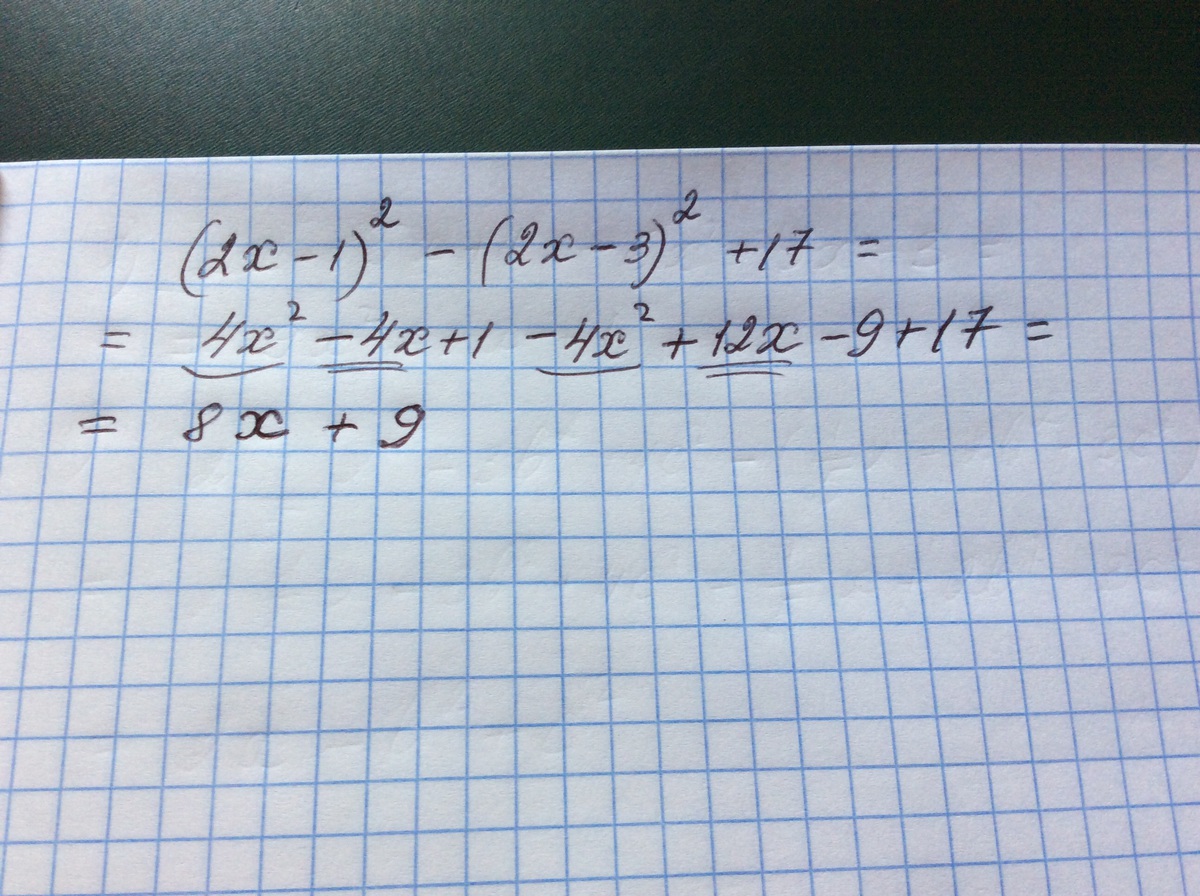 (2x-1)² - (2x-3)² +17 =
= 4x² -4x+1 -4x² +12x -9+17=
= 8x + 9